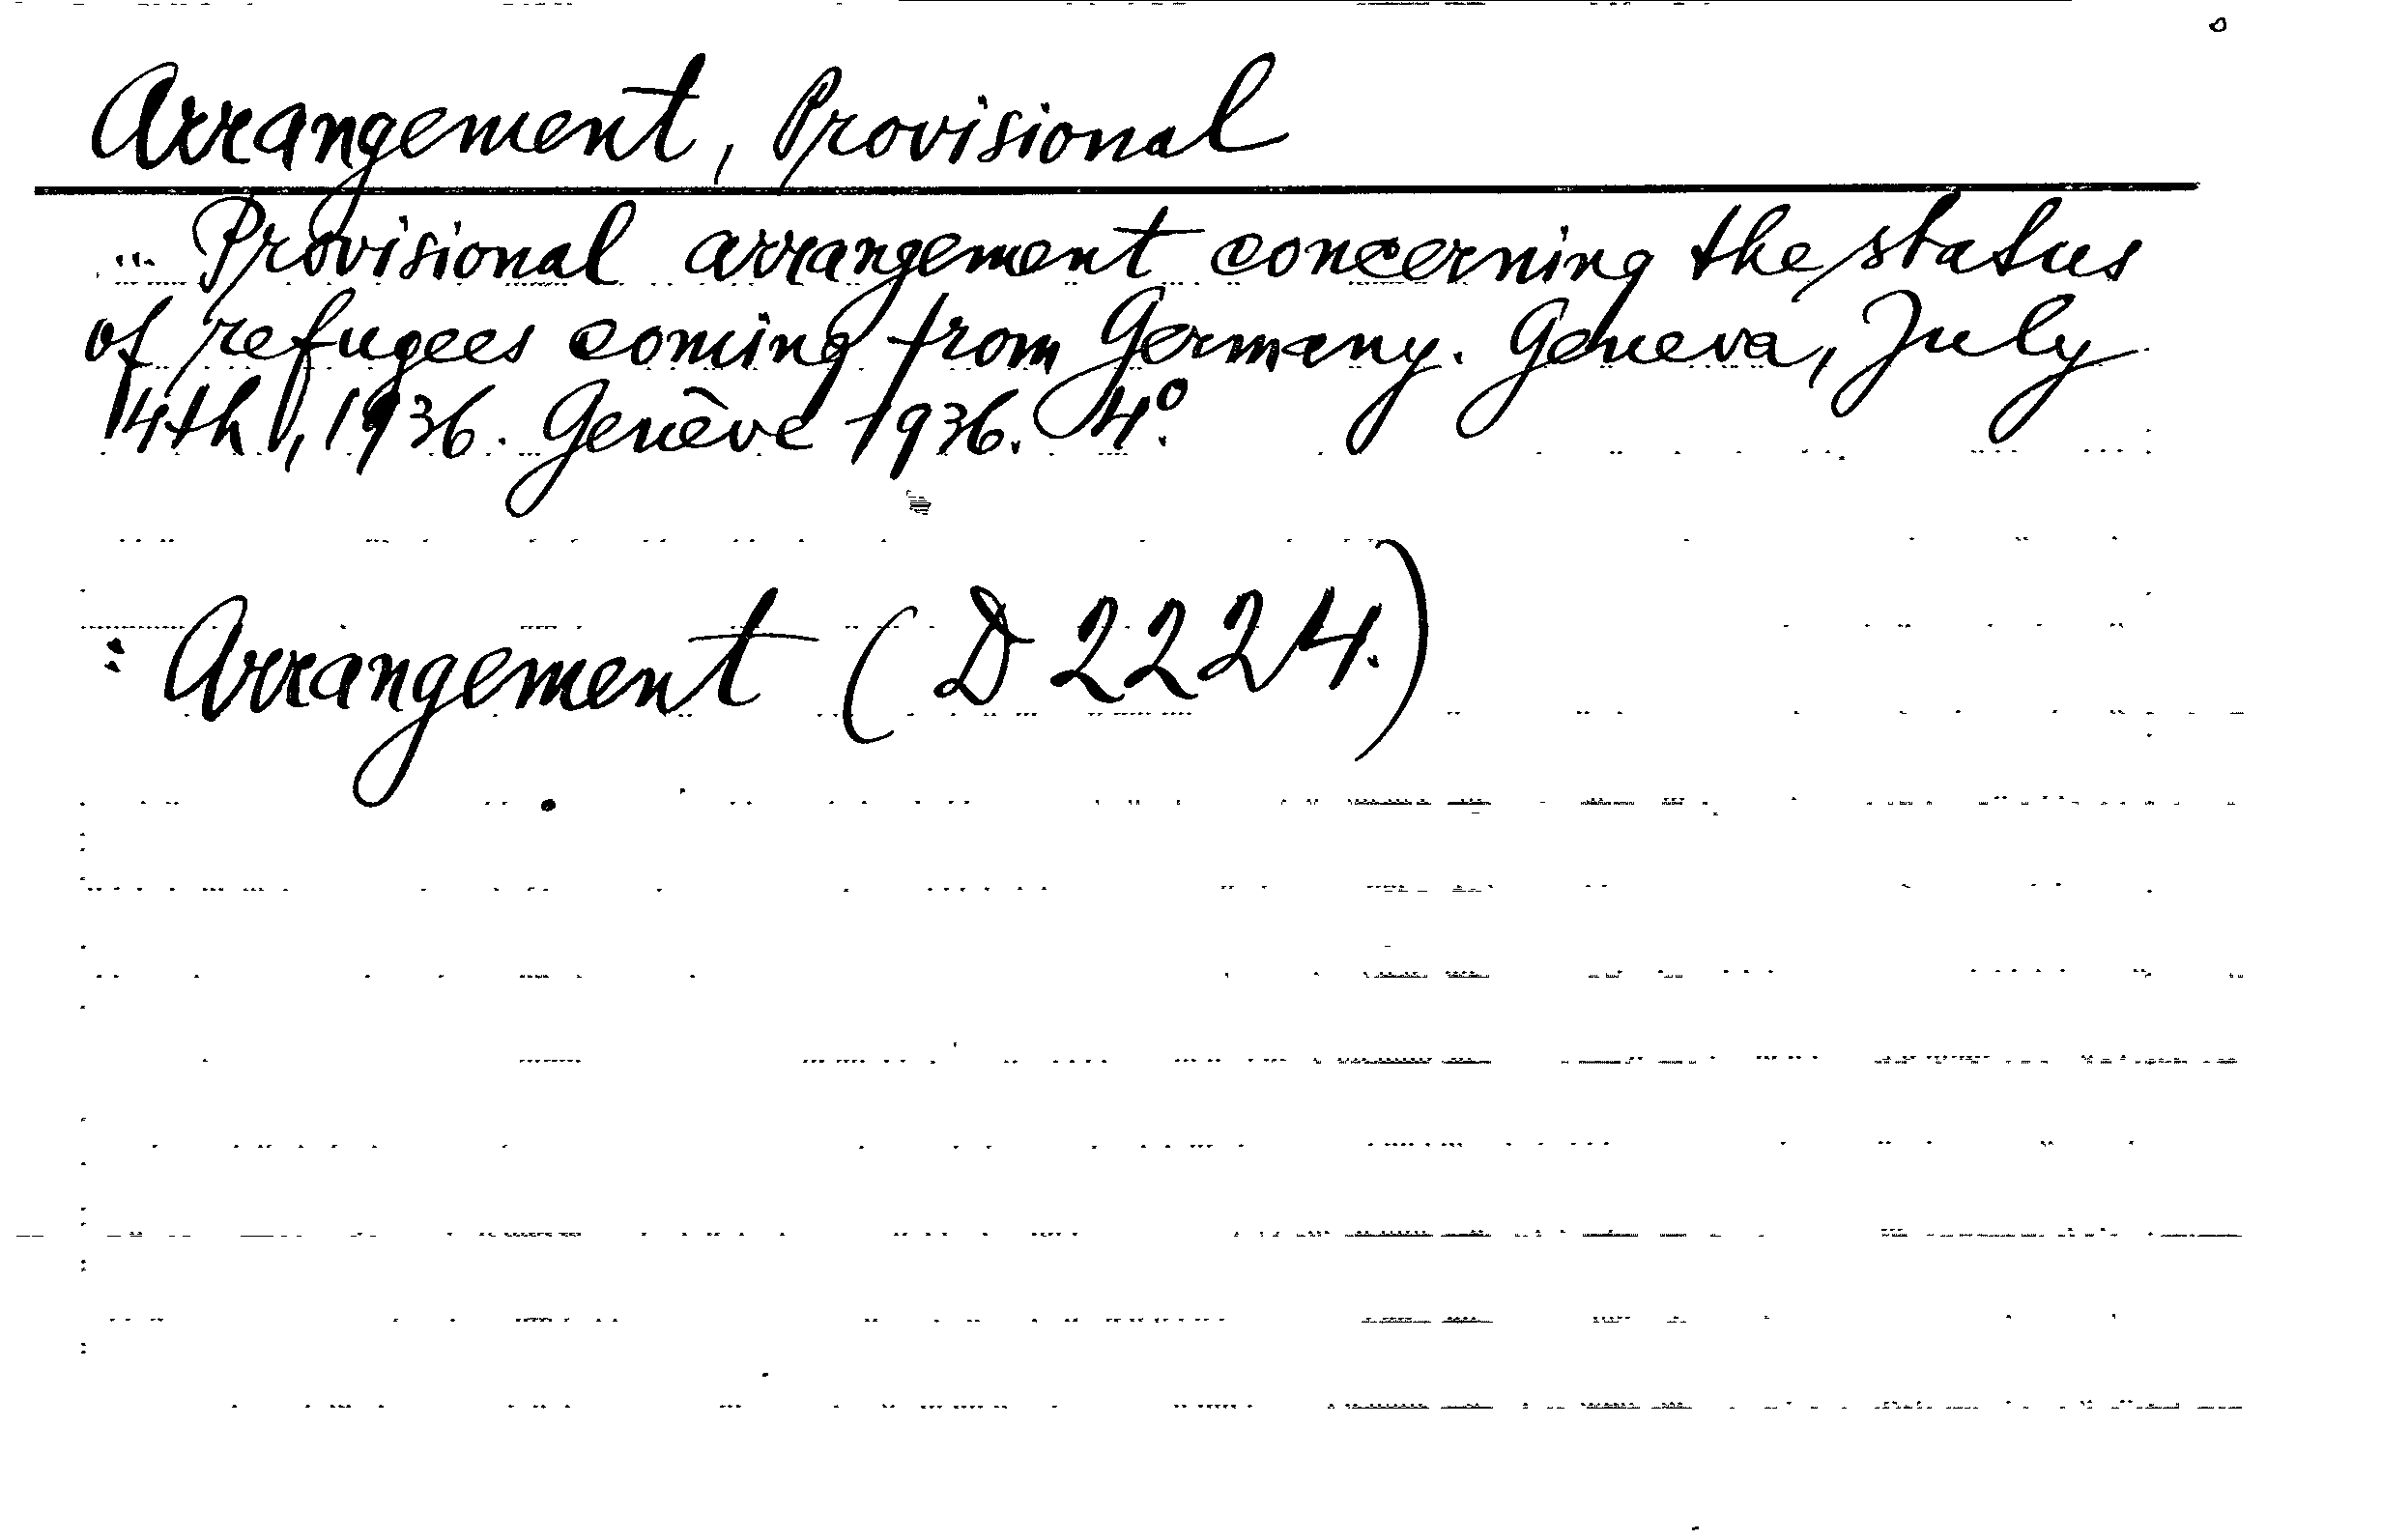 Arrangement, Provisional
Provisional arrangement concerning the status
of refugees coming from Germany. Geneva, July
4th, 1936. Genève 1936. 4º.
: Arrangement (D 2224.)